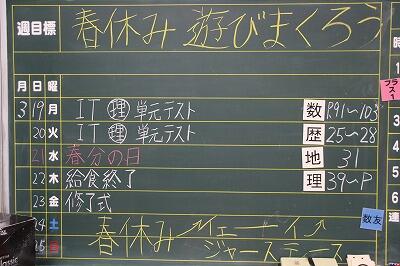 週目標 春休み 遊びまくろう
月 日 曜
3 19 月 IT ㊣ 単元テスト 数 P.91〜103
20 火 IT 理 単元テスト 歴 25〜28
21 水 春分の日 地 31
22 木 給食終了 理 39〜P
23 金 修了式
24 土 春休み イェーイ
25 日 ジャースティース
数友
プラス1
時
1
3
4
5
6
連